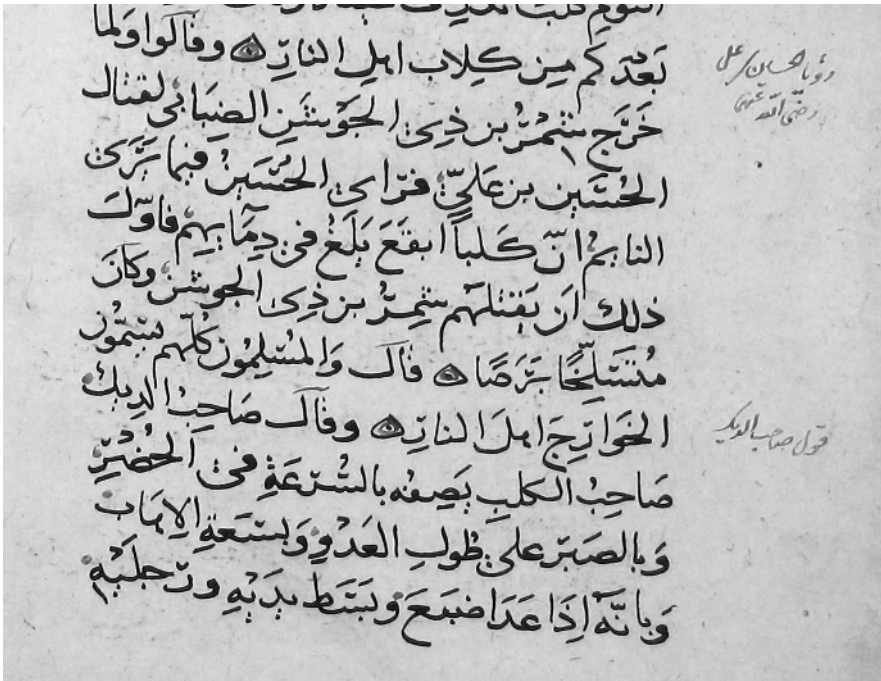 بَعْدَكم مِن كِلابِ اهلِ النارِ ۞ وقالوا ولمّا
خَرَجَ شَمِرُ بن ذي الجَوْشَنِ الضِبَابي لقتال
الحُسَين بن عَليٍّ فرَاى الحُسَينُ فيما يَرَى
النايمُ انّ كلباً ابقَعَ يَلَغُ في دِمَايِهم فاوّلَ
ذلك اَن يَقتلهم شمِرُ بن ذي الجوشن وكانَ
مُنسَلِخًا بَرَصًا ۞ قال وَالمُسْلِمُون كُلّهم يسمّون
الخَوارِجَ كلابَ اهلَ النارِ ۞ وقال صَاحِبُ الدِيكِ
صَاحِبُ الكلبِ يَصِفُه بالسُرْعَةِ في الحُضْرِ
وَبالصَبرِ على طُولِ العَدْوِ وَبسَعَةِ الاِهَابِ
وَبانّه اِذَا عَدَا ضبَعَ وبَسَط يدَيْهِ ورجلَيْهِ
رؤيا الحسين بن على
رضى الله عنهما
قول صاحب الديك